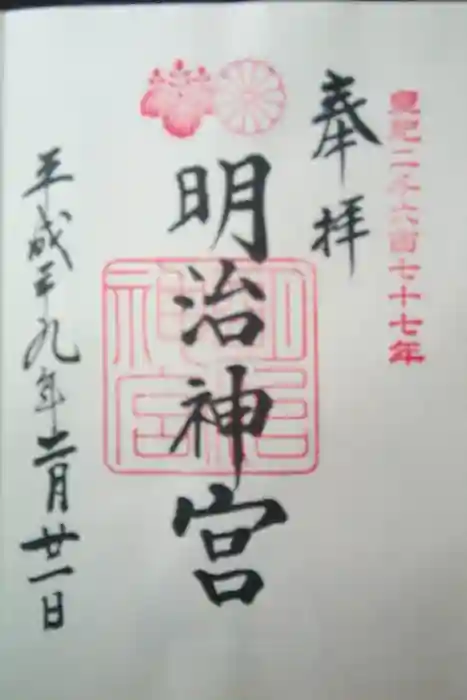 皇紀二千六百七十七年
奉拝
明治神宮
明治
神宮
平成二十九年十二月廿一日